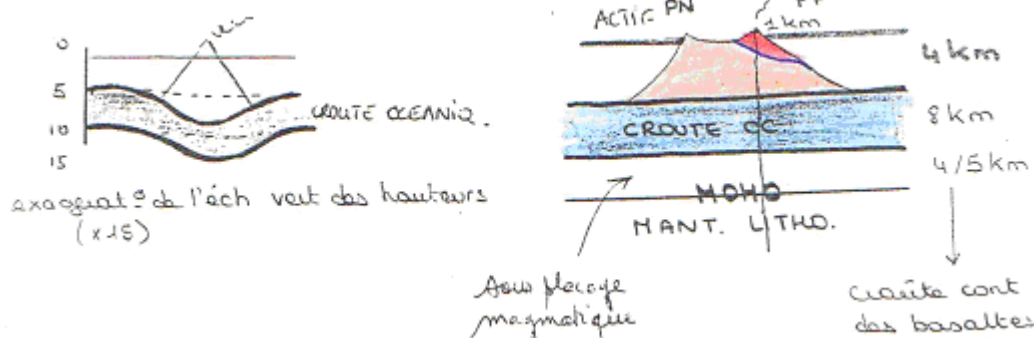 0
5
10
15
CROUTE OCEANIQ.
exagérat° de l'éch vert des hauteurs
(x15)
ACTIF PN
PF
1km
4 km
CROUTE OC
8 km
4/5 km
MOHO
MANT. LITHO.
sous placage
magmatique
croûte cont
des basaltes